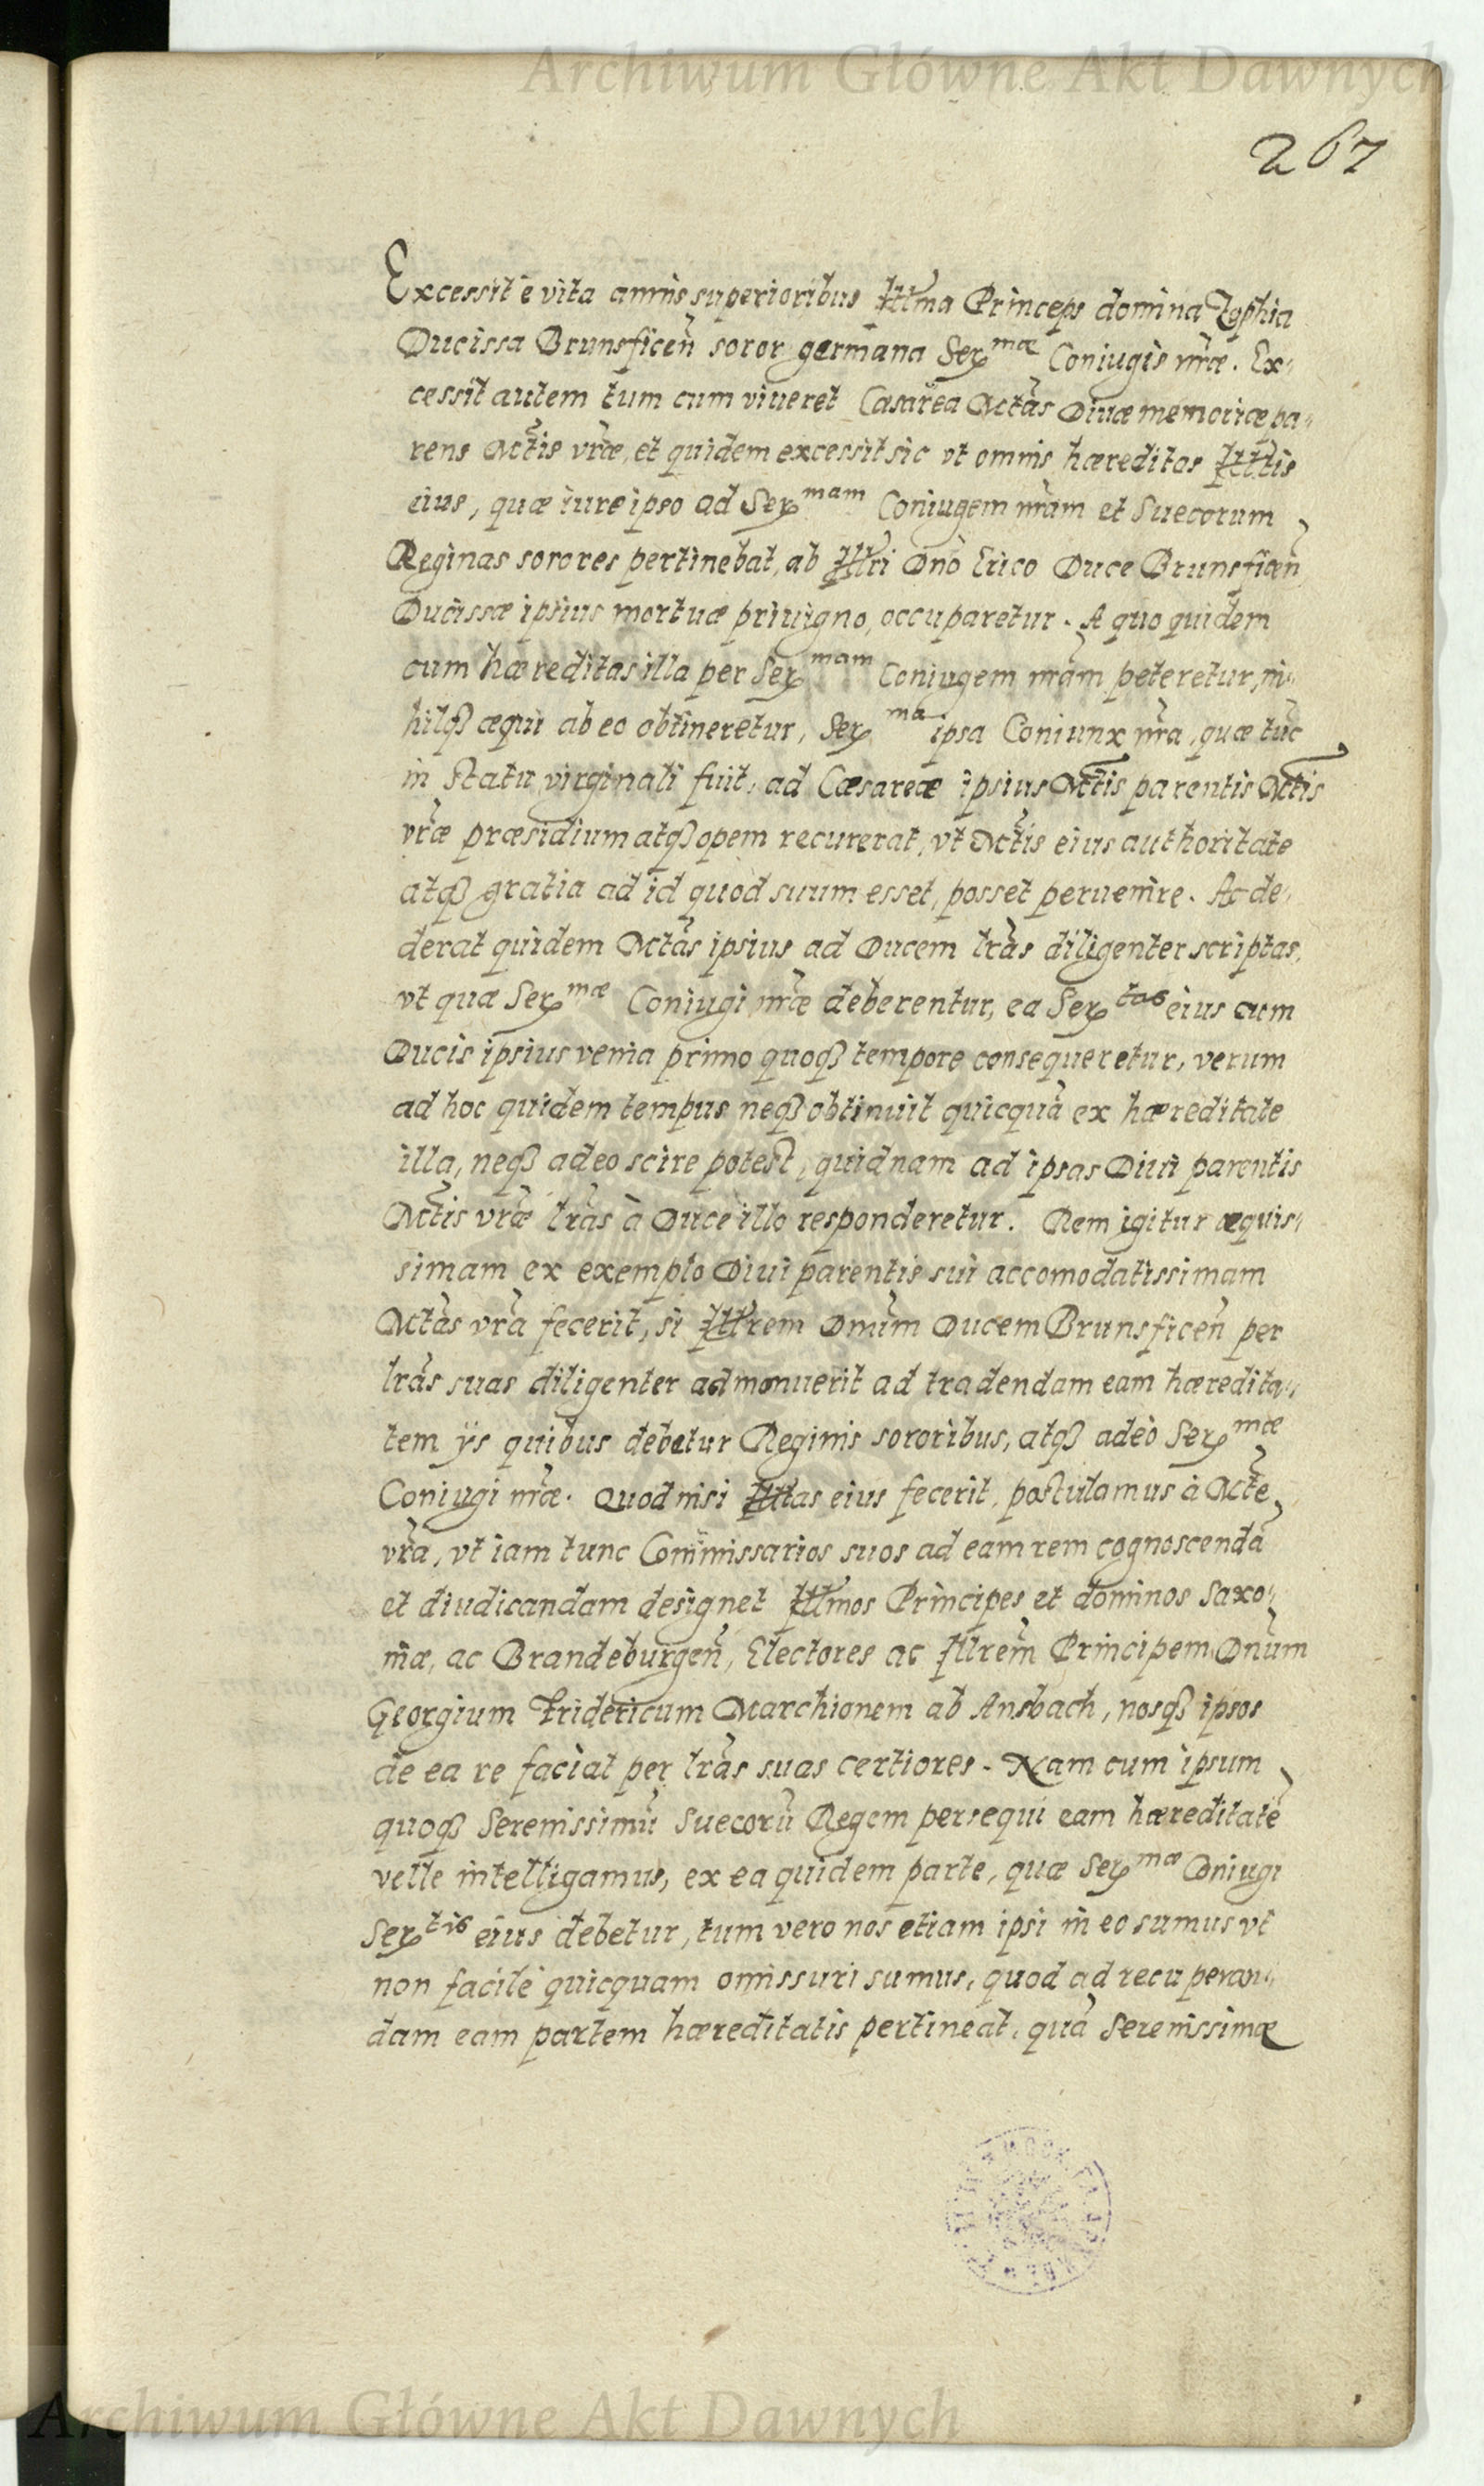 Archiwum Główne Akt Dawnych
267
Excessit è vita annis superioribus Illma Princeps domina Zophia
Ducissa Brunsficeñ soror germana Serᵐᵃᵉ Coniugis nrãe. Ex-
cessit autem tum cum viueret Cæsarea Mctãs Diuæ memoriæ pa-
rens Mctĩs vrãe, et quidem excessit sic vt omnis hæreditas Illtis
eius, quæ iure ipso ad Serᵐᵃᵐ Coniugem nrãm et Suecorum
Reginas sorores pertinebat, ab Illri Dnõ Erico Duce Brunsficeñ
Ducissæ ipsius mortuæ priuigno, occuparetur. A quo quidem
cum hæreditas illa per Serᵐᵃᵐ Coniugem nrãm peteretur, ni-
hilqȝ æqui ab eo obtineretur, Serᵐᵃ ipsa Coniunx nrã, quæ tuc̃
in statu virginali fuit, ad Cæsareæ ipsius Mctĩs parentis Mctĩs
vrãe præsidium atqȝ opem recurrerat, vt Mctĩs eius authoritate
atqȝ gratia ad id quod suum esset, posset peruenire. Ac de-
derat quidem Mctãs ipsius ad Ducem lrãs diligenter scriptas,
vt quæ Serᵐᵃᵉ Coniugi nrãe deberentur, ea Serᵗᵃˢ eius cum
Ducis ipsius venia primo quoqȝ tempore consequeretur, verum
ad hoc quidem tempus neqȝ obtinuit quicquã ex hæreditate
illa, neqȝ adeo scire potest, quidnam ad ipsas Diui parentis
Mctĩs vrãe lrãs à Duce illo responderetur. Rem igitur æquis-
simam ex exemplo Diui parentis sui accomodatissimam
Mctãs vrã fecerit, si Illrem Dnũm Ducem Brunsficeñ per
lrãs suas diligenter admonuerit ad tradendam eam hæredita-
tem ijs quibus debetur Reginis sororibus, atqȝ adeò Serᵐᵃᵉ
Coniugi nrãe. Quod nisi Illtas eius fecerit, postulamus à Mctẽ
vrã, vt iam tunc Commissarios suos ad eam rem cognoscendã
et diudicandam designet Illmos Principes et dominos Saxo-
niæ, ac Brandeburgeñ, Electores ac Illrem̃ Principem Dnũm
Georgium Fridericum Marchionem ab Ansbach, nosqȝ ipsos
de ea re faciat per lrãs suas certiores. Nam cum ipsum
quoqȝ Serenissimũ Suecorũ Regem persequi eam hæreditatẽ
velle intelligamus, ex ea quidem parte, quæ Serᵐᵃᵉ Coniugi
Serᵗⁱˢ eius debetur, tum vero nos etiam ipsi in eo sumus vt
non facilè quicquam omissuri sumus, quod ad recuperan-
dam eam partem hæreditatis pertineat, quã Serenissimæ
Archiwum Główne Akt Dawnych